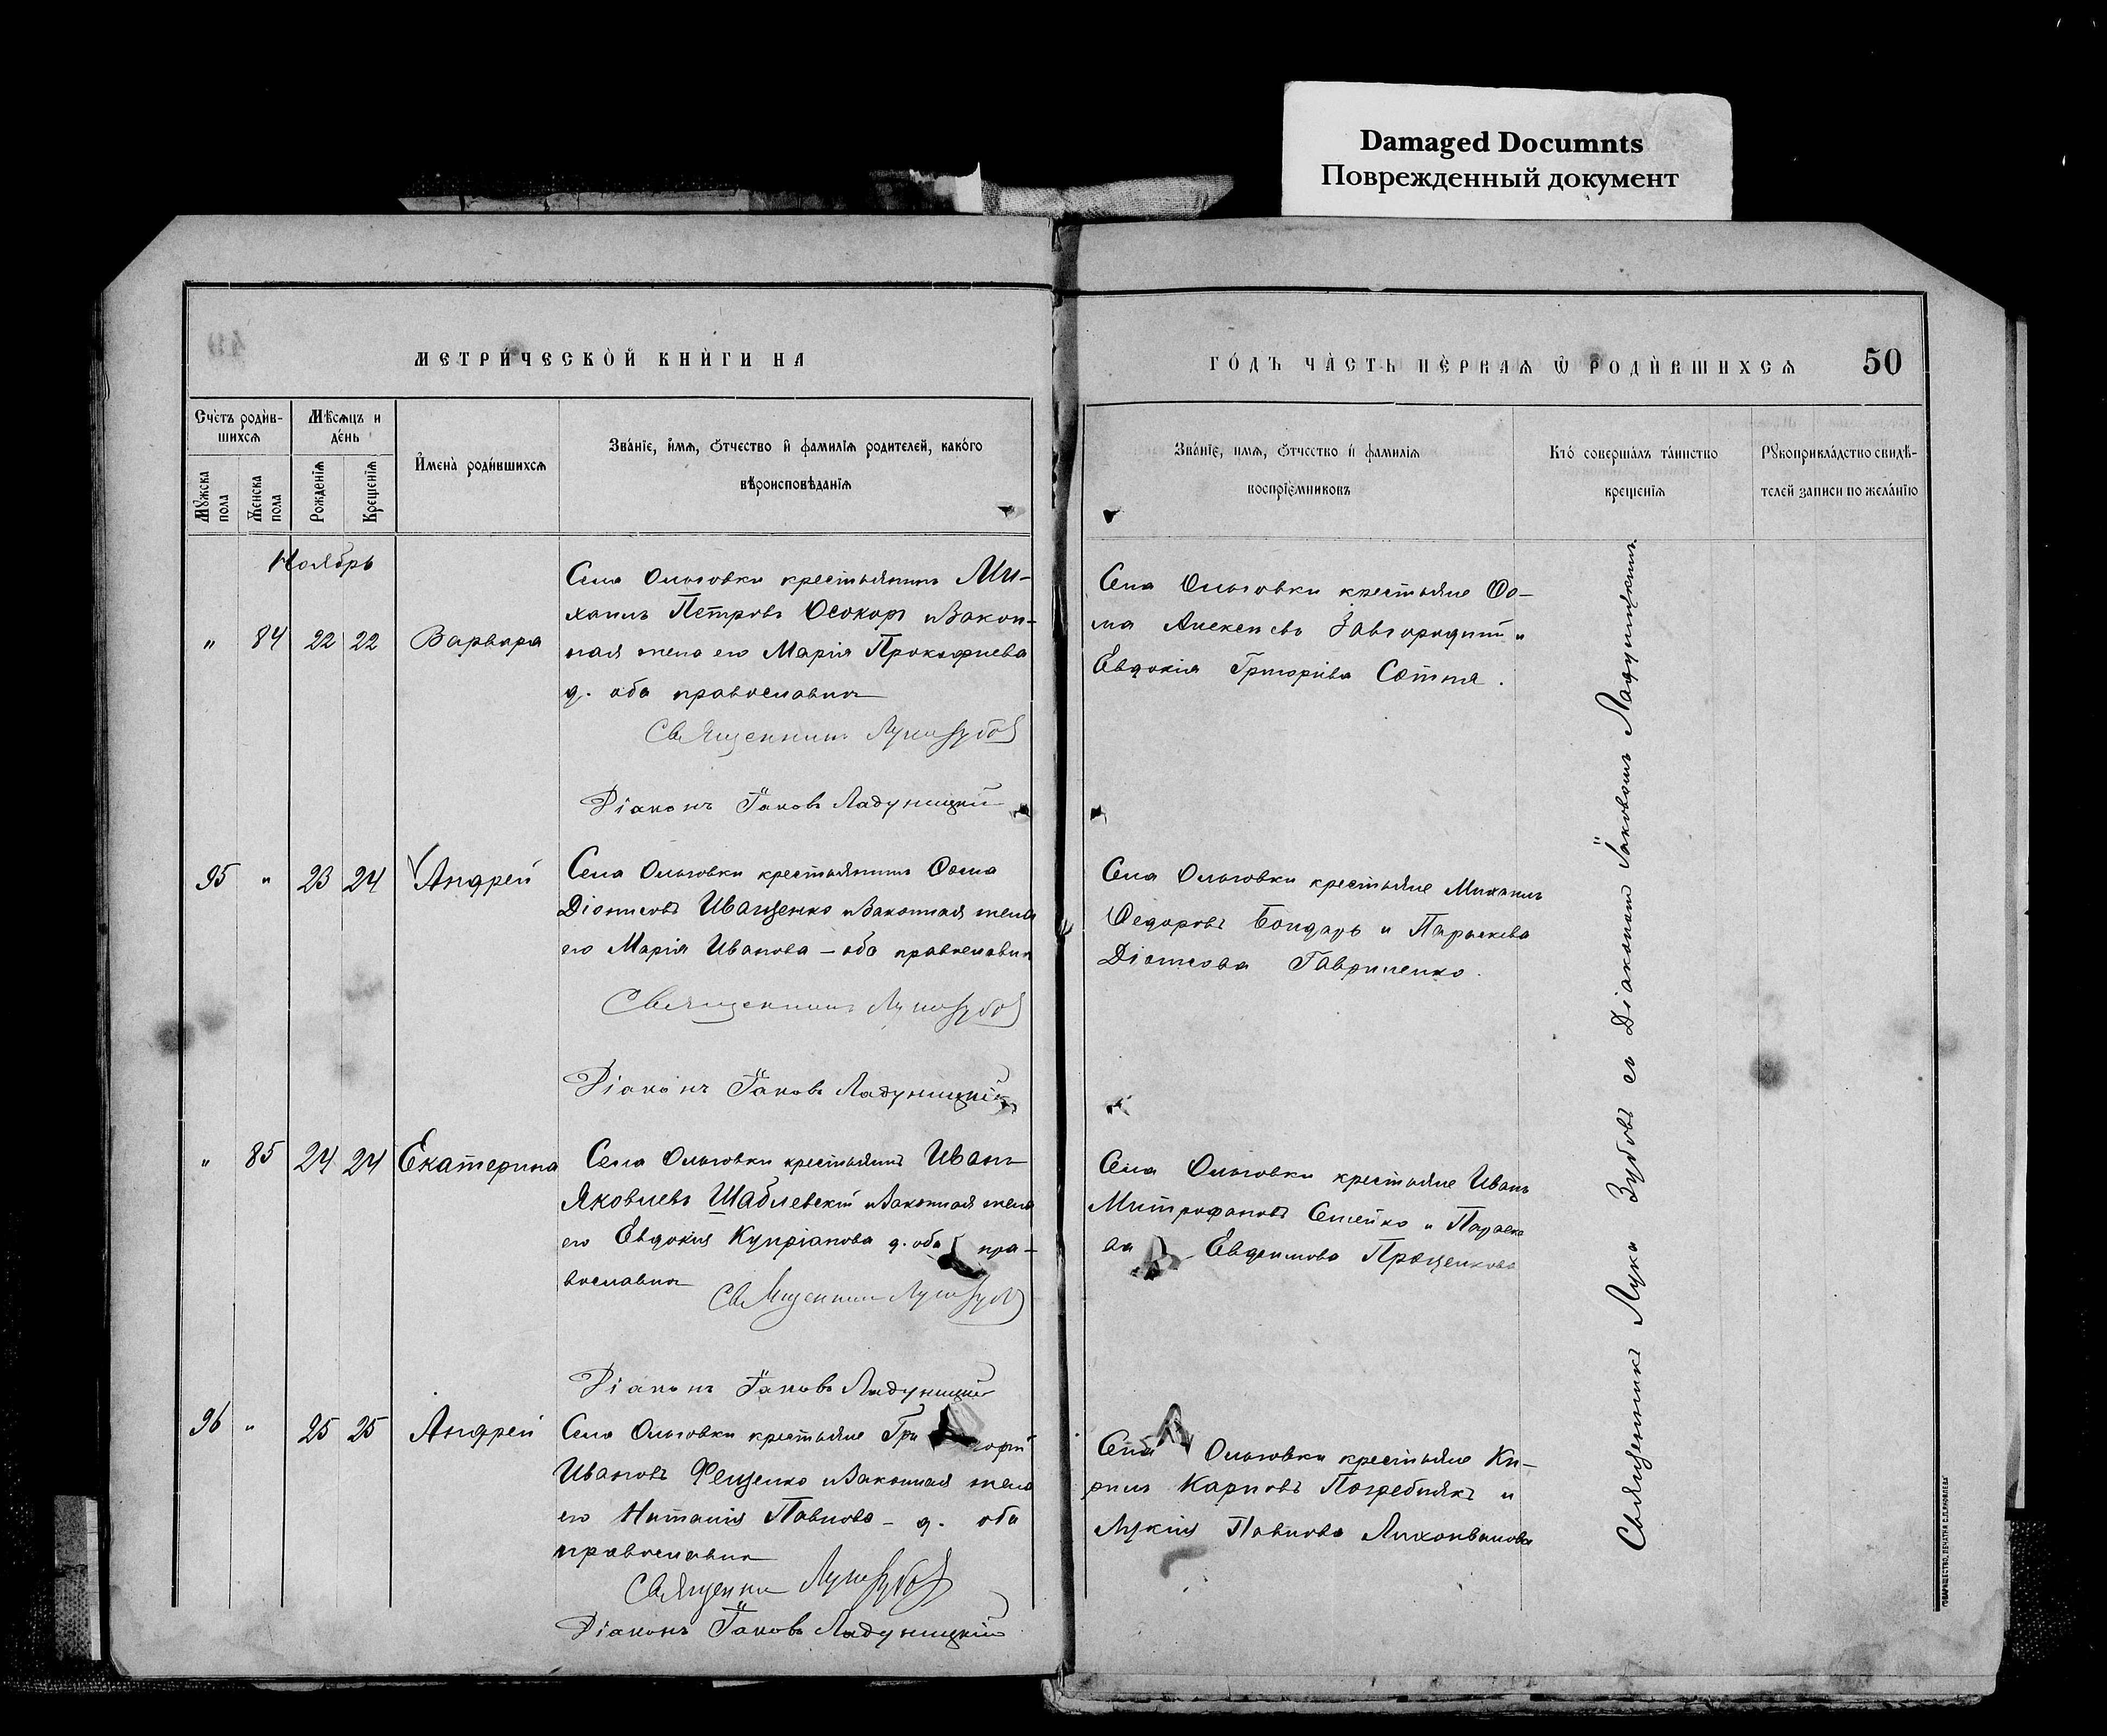 Damaged Documnts
Поврежденный документ
МЕТРИ́ЧЕСКОЙ КНИ́ГИ НА
ГО́ДЪ ЧА́СТЬ ПЕ́РВАѦ Ѡ РОДИ́ВШИХСѦ
50
Счетъ роди́в-
шихсѧ
Мꙋ́жска пола
Же́нска пола
Мѣ́сѧцъ и
де́нь
Рожденїѧ
Крещенїѧ
И҆мена̀ роди́вшихсѧ
Зва́нїе, и҆́мѧ, ѻ҆́тчество и҆ фамилїѧ родителей, како́го
вѣроисповѣ́данїѧ
Зва́нїе, имѧ, ѻ҆́тчество и҆ фамилїѧ
воспрїе́мниковъ
Кто̀ соверша́лъ та́инство
креще́нїѧ
Рꙋкоприкла́дство свидѣ́-
телей записи по жела́нїю
Ноябрь
" 84 22 22 Варвара
Села Ольговки крестьянинъ Ми-
хаилъ Петровъ Осокоръ и закон-
ная жена его Марія Прокофиева
д. оба православна
Священникъ Лука Зубов
Діаконъ Іаковъ Ладуницкій
Села Ольговки крестьяне Ѳо-
ма Алексеевъ Завгородній и
Евдокія Григоріева
95 " 23 24 Андрей
Села Ольговки крестьянинъ Ѳома
Діонисовъ Иващенко и законная жена
его Марія Иванова – оба православн
Священникъ Лука Зубов
Діаконъ Іаковъ Ладуницкій
Села Ольговки крестьяне Михаилъ
Ѳедоровъ Бондарь и Параскева
Діонисова Гавриленко.
" 85 24 24 Екатерина
Села Ольговки крестьянинъ Иванъ
Яковлевъ Шаблевскій и законная жена
его Евдокія Купріанова д. оба пра-
вославна
Священникъ Лука Зубов
Діаконъ Іаковъ Ладуницкій
Села Ольговки крестьяне Иванъ
Митрофановъ и Параске
ва
96 " 25 25 Андрей
Села Ольговки крестьяне Гри горій
Ивановъ Фещенко и законная жена
его Наталія Павлова – д. оба
православна
Священни Лука Зубов
Діаконъ Іаковъ Ладуницкій
Села Ольговки крестьяне Ки-
рилъ Карповъ Погребнякъ и
Лукія Павлова
Священникъ Лука Зубовъ съ Діакономъ Іаковомъ Ладуницкимъ.